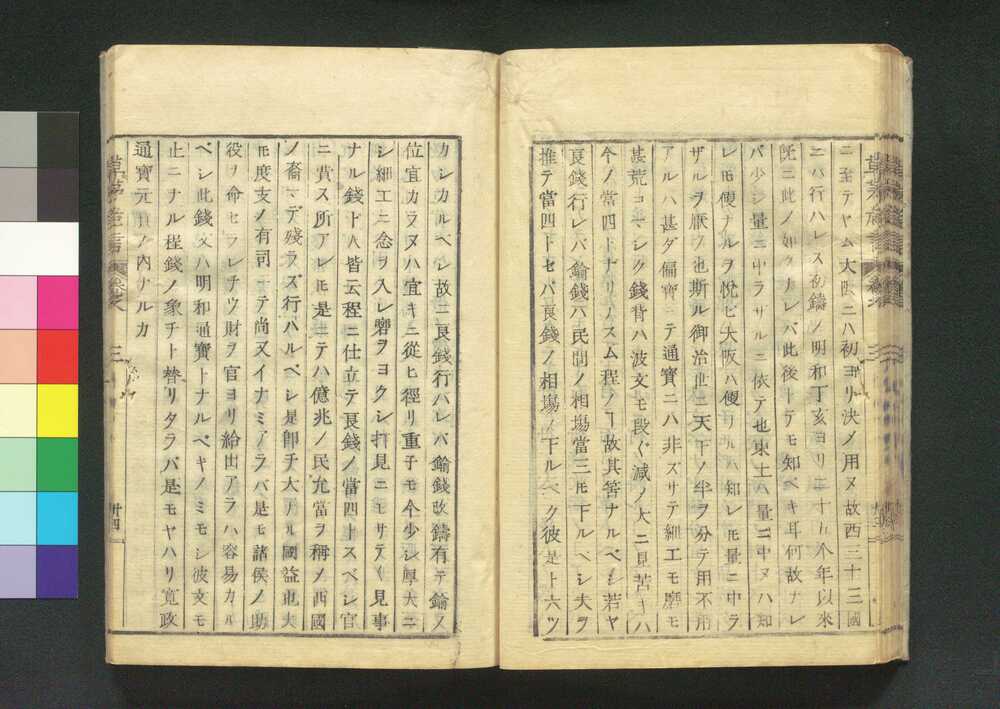 ニ至テヤム大阪ニハ初ヨリ決ノ用ヌ故西三十三國
ニハ行ハレス初鑄ノ明和丁亥ヨリ二十五个年以來
既ニ此ノ如クナレバ此後トテモ知ベキ耳何故ナレ
バ少シ量ニ中ラザルニ依テ也東土ハ量ニ中ヌハ知
レ𪜈便ナルヲ悦ビ大阪ハ便リハ知レ𪜈量ニ中ラ
ザルヲ厭フ也斯ル御治世ニ天下ノ半ヲ分テ用不用
アルハ甚ダ偏寶ニテ通寶ニハ非ズサテ細工モ磨モ
甚荒コマシク錢背ハ波文モ段々減ノ大ニ見苦キハ
今ノ當四トナリノスム程ノ故其筈ナルベシ若ヤ
良錢行レバ鍮錢ハ民間ノ相塲當三𪜈下ルベシ夫ヲ
推テ當四トセバ良錢ノ相塲ノ下ルベク彼是ト六ツ
カシカルベシ故ニ良錢行ハレバ鍮錢改鑄有テ鍮ヌ
位宜カラヌハ宜キニ從ヒ徑リ重子モ今少シ厚大ニ
シ細工ニ念ヲ入レ磨ヲヨクシ打見ニモサテ〱見事
ナル錢ト人皆云程ニ仕立テ良錢ノ當四トスベシ官
ニ費ス所アレ𪜈是ニテハ億兆ノ民允當ヲ稱ノ西國
ノ裔マデ殘ラズ行ハルベシ是卽チ大アル國益也夫
𪜈度支ノ有司ニテ尚又イナミアラバ是モ諸侯ノ助
役ヲ命セラレチツ財ヲ官ヨリ給出アラハ容易カル
ベシ此錢文ハ明和通寶トナルベキノミモシ彼文モ
止ニナル程錢ノ象チト替リタラバ是モヤハリ寛政
通寶元日ノ内ナルカ
草茅危言
卷之
三
廿四